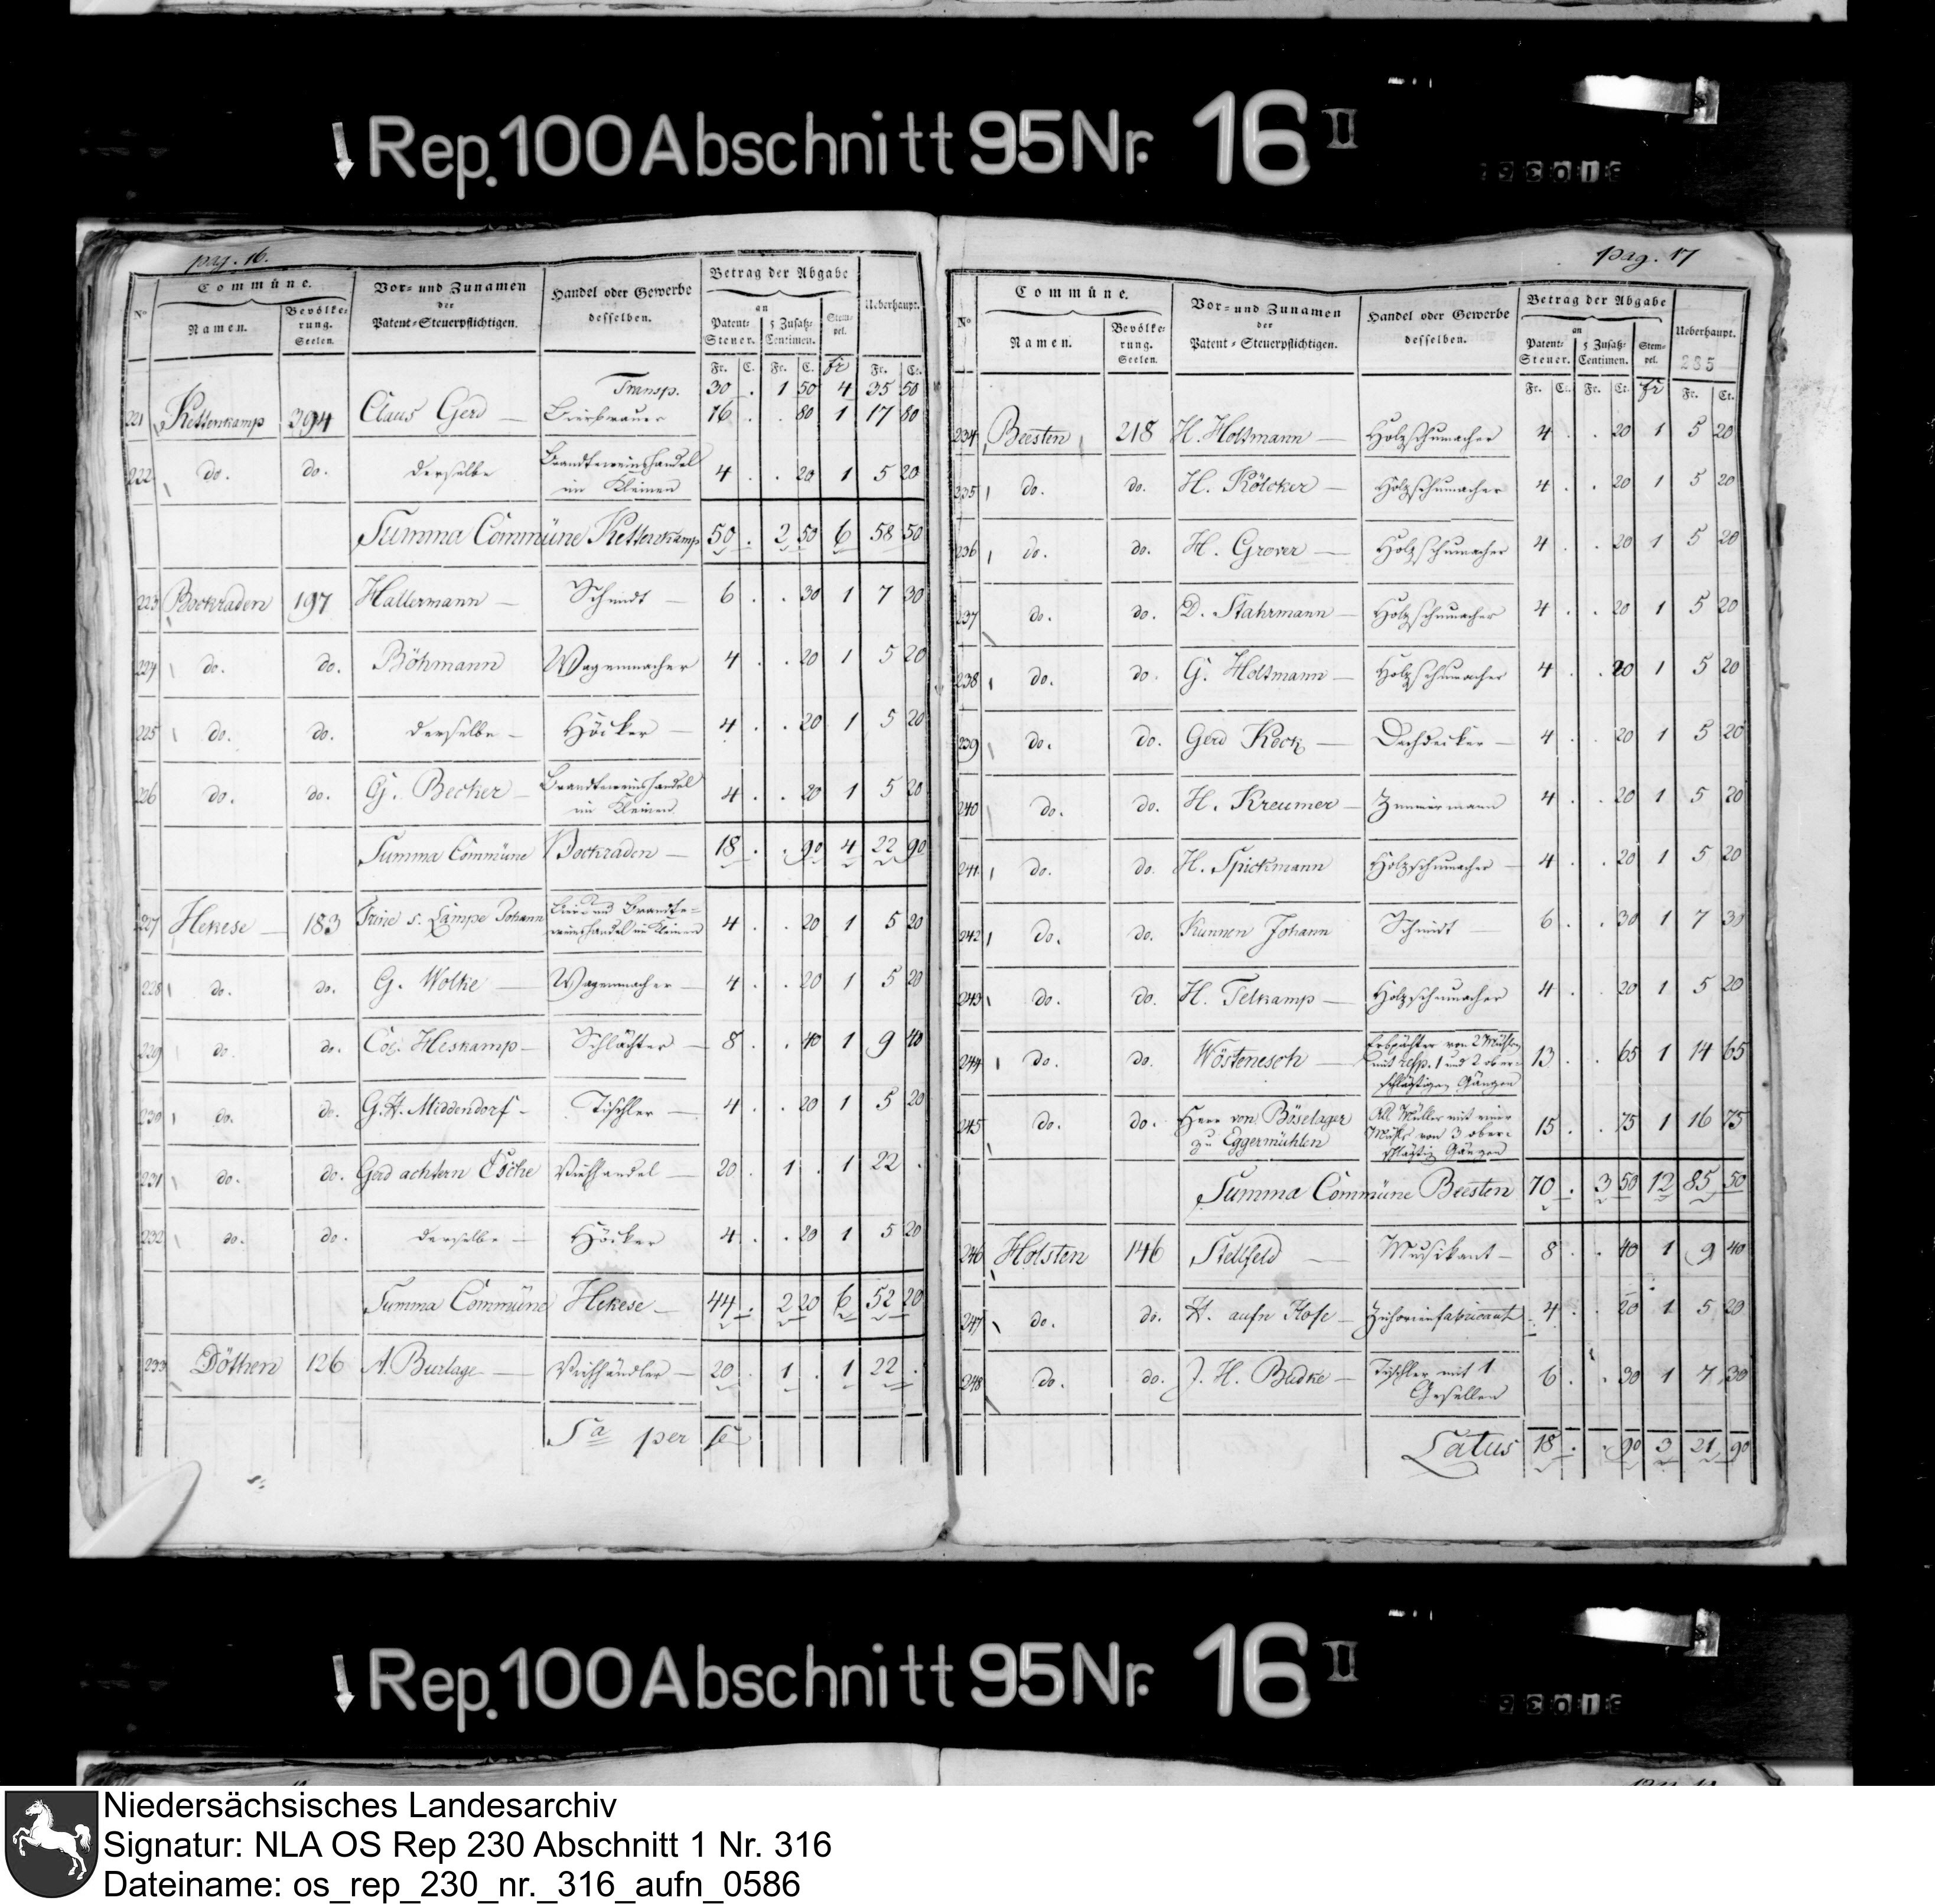 Rep. 100 Abschnitt 95 Nr. 16 II
pag. 16.
No Commüne. Vor- und Zunamen der Patent-Steuerpflichtigen. Handel oder Gewerbe desselben. Betrag der Abgabe Ueberhaupt.
Namen. Bevölkerung. Seelen. an Patent-Steuer. 5 Zusatz-Centimen. Stempel.
Fr. C. Fr. C. fr Fr. Ct.
Transp. 30 . 1 50 4 35 50
221 Kettenkamp 394 Claus Gerd Bierbrauer 16 . . 80 1 17 80
222 do. do. derselbe Brandtweinshandel im Kleinen 4 . . 20 1 5 20
Summa Commüne Kettenkamp 50 . 2 50 6 58 50
223 Bockraden 197 Hallermann Schmidt 6 . . 30 1 7 30
224 do. do. Böhmann Wagenmacher 4 . . 20 1 5 20
225 do. do. derselbe Höcker 4 . . 20 1 5 20
226 do. do. G. Becker Brandtweinshandel im Kleinen 4 . . 20 1 5 20
Summa Commüne Bockraden 18 . . 90 4 22 90
227 Hekese 183 Trine s. Lampe Johann Bier und Brandte= weinshandel im Kleinen 4 . . 20 1 5 20
228 do. do. G. Wolke Wagenmacher 4 . . 20 1 5 20
229 do. do. Heskamp Schlächter 8 . . 40 1 9 40
230 do. do. G. H. Middendorf Tischler 4 . . 20 1 5 20
231 do. do. Gerd achtern Esche Viehhandel 20 . 1 . 1 22 .
232 do. do. derselbe Höcker 4 . . 20 1 5 20
Summa Commüne Hekese 44 . 2 20 6 52 20
233 Döthen 126 A. Burlage Viehhändler 20 . 1 . 1 22 .
Sa per se
pag. 17
No Commüne. Vor- und Zunamen der Patent-Steuerpflichtigen. Handel oder Gewerbe desselben. Betrag der Abgabe Ueberhaupt.
Namen. Bevölkerung. Seelen. an Patent-Steuer. 5 Zusatz-Centimen. Stempel. 285
Fr. C. Fr. Ct. fr Fr. Ct.
234 Beesten 218 H. Holtmann Holzschumacher 4 . . 20 1 5 20
235 do. do. H. Kölcker Holzschumacher 4 . . 20 1 5 20
236 do. do. H. Grever Holzschumacher 4 . . 20 1 5 20
237 do. do. D. Stahrmann Holzschumacher 4 . . 20 1 5 20
238 do. do. G. Holtmann Holzschumacher 4 . . 20 1 5 20
239 do. do. Gerd Kock Dachdecker 4 . . 20 1 5 20
240 do. do. H. Kreumer Zimmermann 4 . . 20 1 5 20
241 do. do. H. Spickmann Holzschumacher 4 . . 20 1 5 20
242 do. do. Kunnen Johann Schmidt 6 . . 30 1 7 30
243 do. do. H. Telkamp Holzschumacher 4 . . 20 1 5 20
244 do. do. Wöstenesch Erbpächter von 2 Mühlen mit resp. 1 und 2 ober= schlächtigen Gängen 13 . . 65 1 14 65
245 do. do. Herr von Böselager zu Eggermühlen Als Müller mit einer Mühle von 3 ober= schlächtig Gängen 15 . . 75 1 16 75
Summa Commüne Beesten 70 . 3 50 12 85 50
246 Holsten 146 Stellfeld Musikant 8 . . 40 1 9 40
247 do. do. H. aufn Hofe Zichorienfabricant 4 . . 20 1 5 20
248 do. do. J. H. Budke Tischler mit 1 Gesellen 6 . . 30 1 7 30
Latus 18 . . 90 3 21 90
Rep. 100 Abschnitt 95 Nr. 16 II
Niedersächsisches Landesarchiv
Signatur: NLA OS Rep 230 Abschnitt 1 Nr. 316
Dateiname: os_rep_230_nr._316_aufn_0586